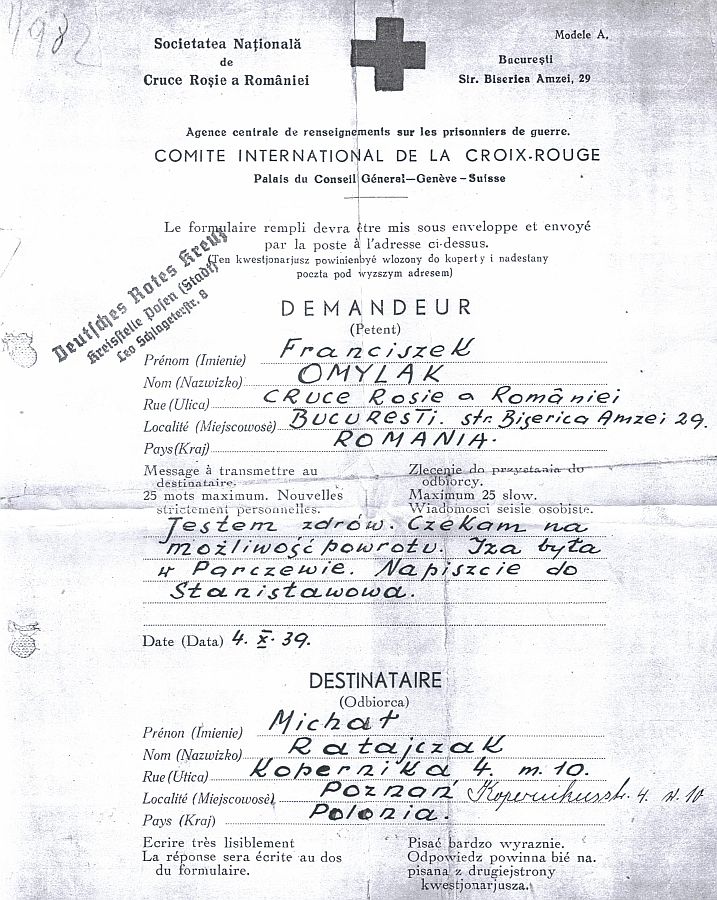 1982
Societatea Națională
de
Cruce Roșie a României
Modele A.
București
Str. Biserica Amzei, 29
Agence centrale de renseignements sur les prisonniers de guerre.
COMITE INTERNATIONAL DE LA CROIX-ROUGE
Palais du Conseil Géneral—Genève – Suisse
Le formulaire rempli devra être mis sous enveloppe et envoyé
par la poste à l'adresse ci-dessus.
(Ten kwestjonarjusz powinienbyé wlozony do koperty i nadestany
poczta pod wyzszym adresem)
Deutsches Rotes Kreuz
Kreisstelle Posen (Stadt)
Leo Schlageterstr. 8
DEMANDEUR
(Petent)
Prénom (Imienie) Franciszek
Nom (Nazwizko) OMYLAK
Rue (Ulica) CRUCE Rosie a României
Localité (Miejscowosè) BUCURESTI. str. Biserica Amzei 29.
Pays (Kraj) ROMANIA.
Message à transmettre au
destinataire.
25 mots maximum. Nouvelles
strictement personnelles.
Zlecenie do przystania do
odbiorcy.
Maximum 25 slow.
Wiadomosci seisle osobiste.
Jestem zdrów. Czekam na
możliwość powrotu. Iza była
w Parczewie. Napiszcie do
Stanisławowa.
Date (Data) 4. X. 39.
DESTINATAIRE
(Odbiorca)
Prénon (Imienie) Michał
Nom (Nazwizko) Ratajczak
Rue (Utica) Kopernika 4. m. 10.
Localité (Miejscowosè) Poznań Kopernikusstr. 4. W. 10
Pays (Kraj) Polonia.
Ecrire très lisiblement
La réponse sera écrite au dos
du formulaire.
Pisać bardzo wyraznie.
Odpowiedz powinna bié na.
pisana z drugiejstrony
kwestjonarjusza.